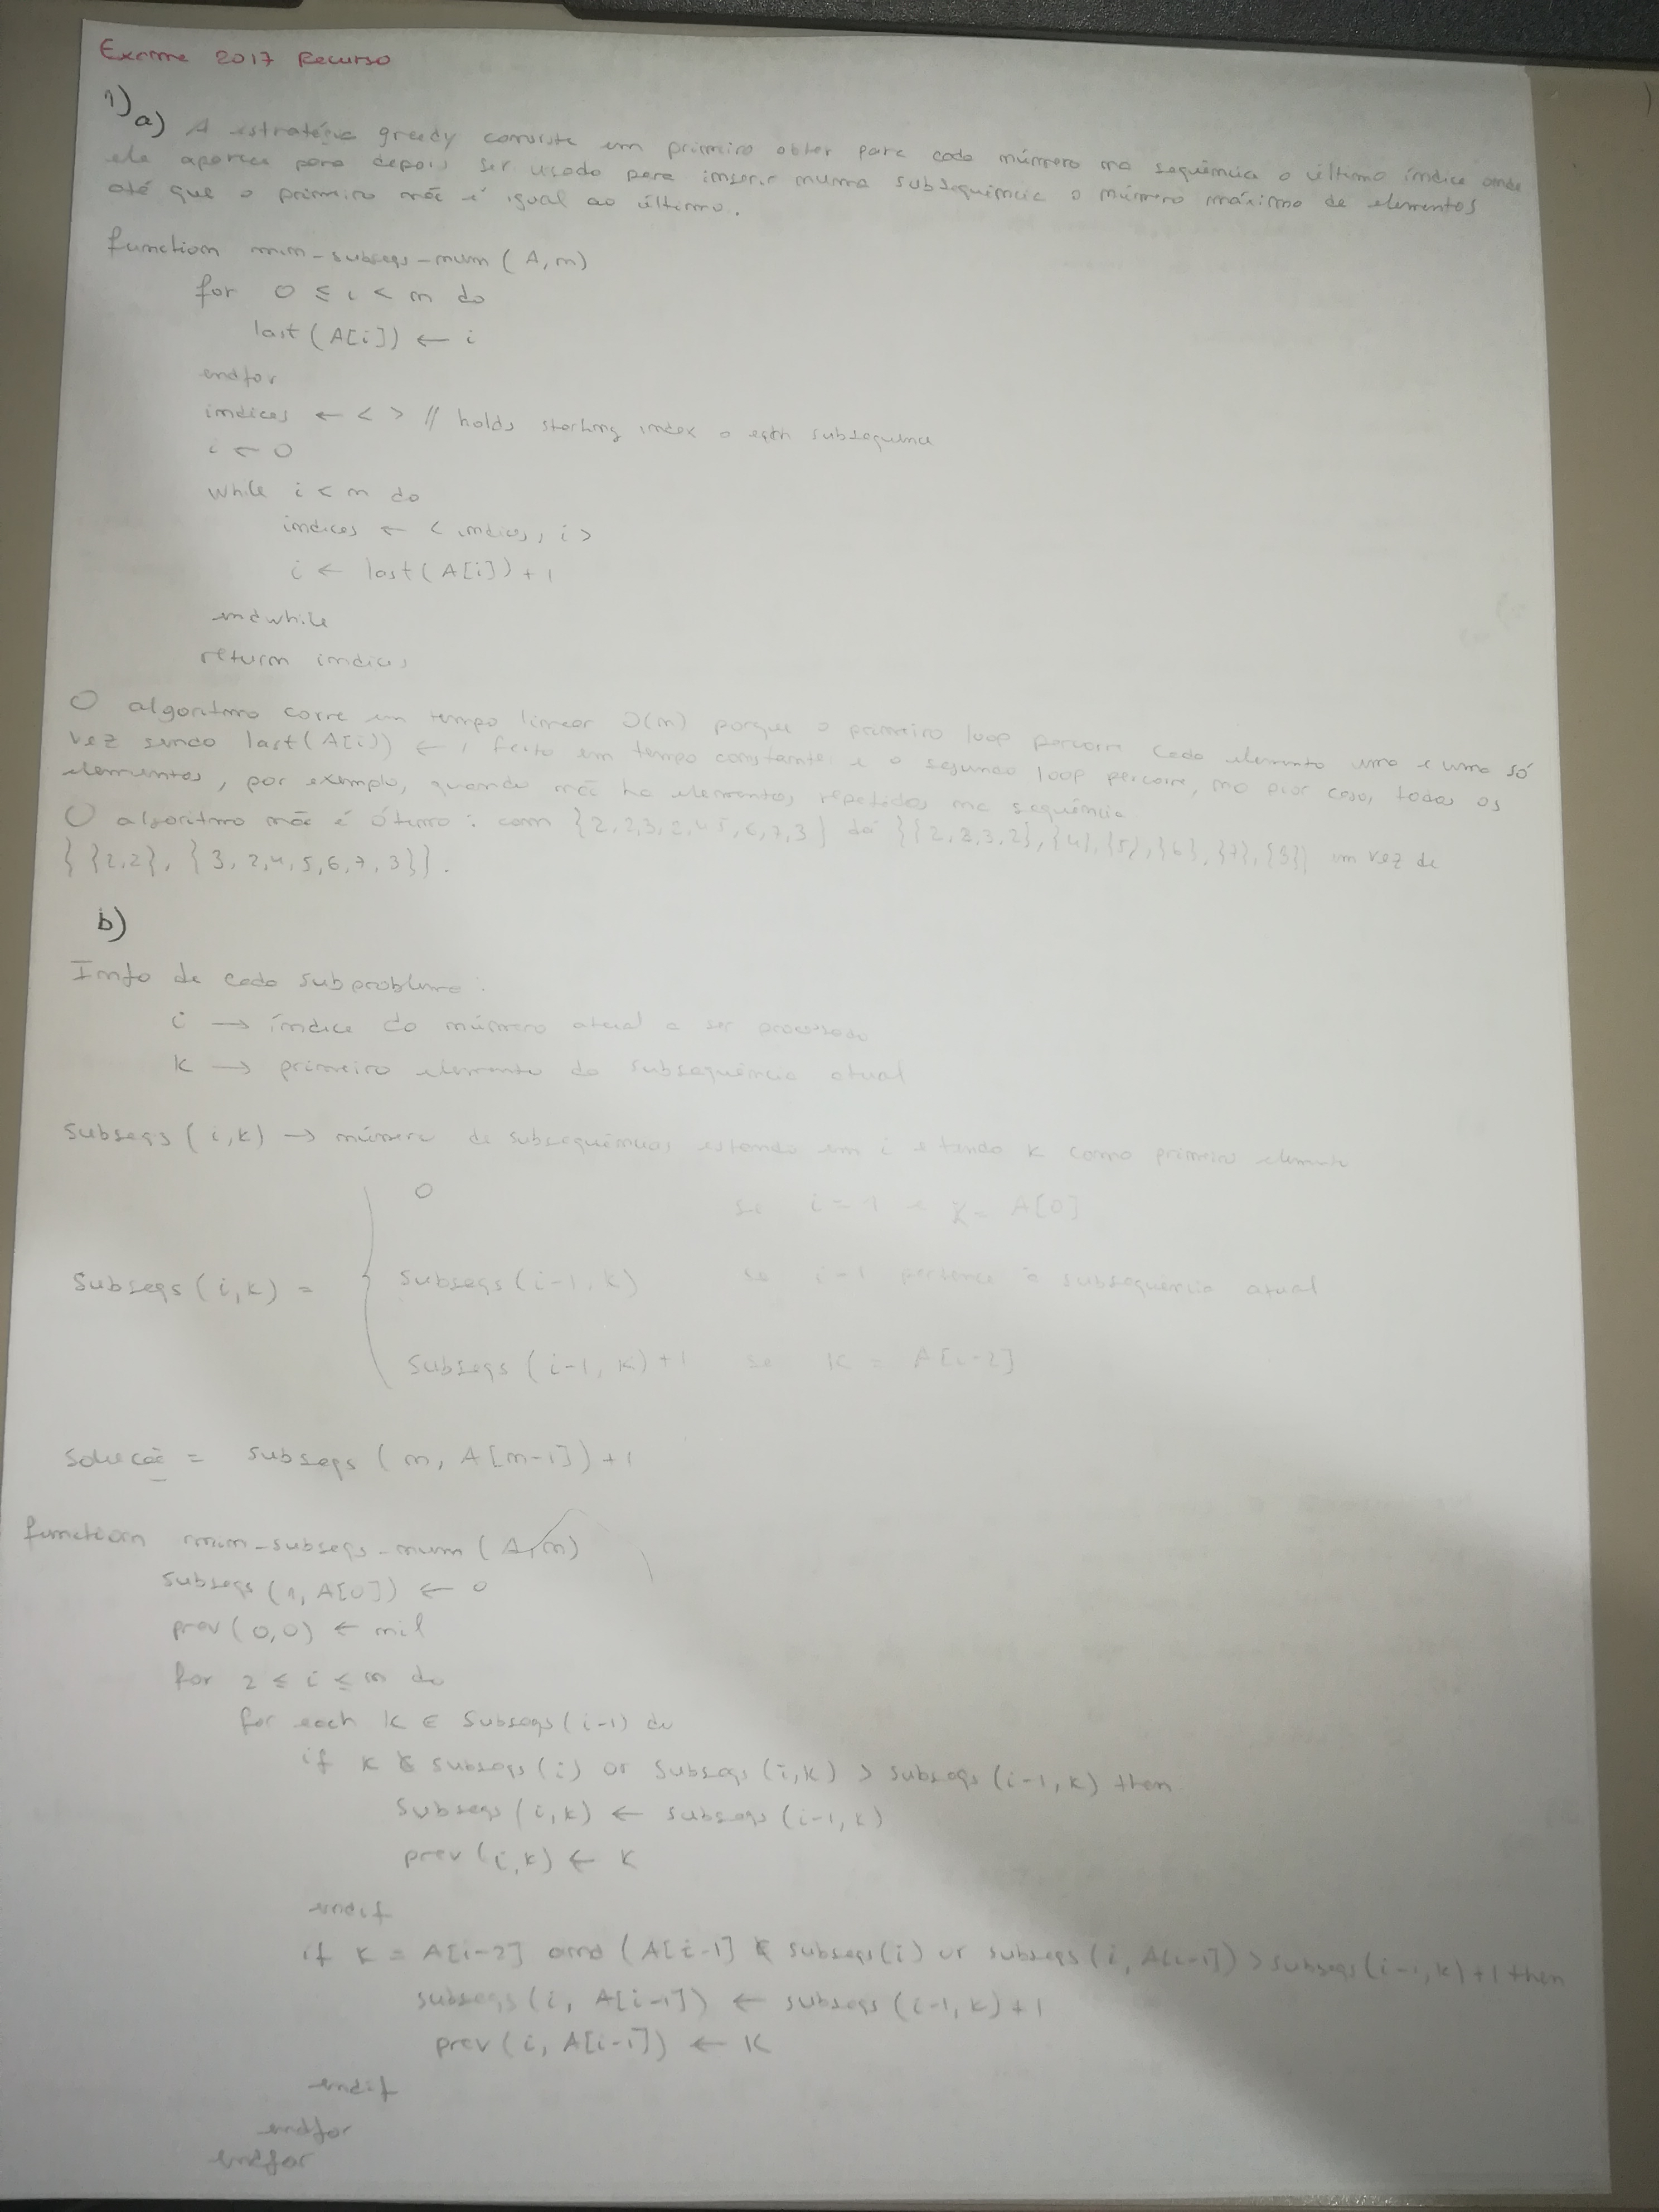 Exame 2017 Recurso
1)
a) A estratégia greedy consiste em primeiro obter para cada número na sequência o último índice onde
ele aparece para depois ser usado para inserir numa subsequência o número máximo de elementos
até que o primeiro não é igual ao último.
function min-subseqs-num (A,n)
for 0 ≤ i < n do
last(A[i]) ← i
endfor
indices ← < > // holds starting index o subsequence
i ← 0
while i < n do
indices ← < indices, i >
i ← last(A[i]) + 1
endwhile
return indices
O algoritmo corre em tempo linear O(n) porque o primeiro loop percorre cada elemento uma e uma só
vez sendo last(A[i]) ← i feito em tempo constante e o segundo loop percorre, no pior caso, todos os
elementos, por exemplo, quando não há elementos repetidos na sequência
O algoritmo não é ótimo: com {2,2,3,2,4,5,6,7,3} dá {{2,2,3,2},{4},{5},{6},{7},{3}} em vez de
{{2,2}, {3,2,4,5,6,7,3}}.
b)
Info de cada subproblema:
i → índice do número atual a ser processado
k → primeiro elemento da subsequência atual
subseqs (i,k) → número de subsequências estando em i e tendo k como primeiro elemento
0 se i = 1 e k = A[0]
subseqs (i,k) = subseqs (i-1, k) se i-1 pertence à subsequência atual
subseqs (i-1, k) + 1 se k = A[i-2]
solução = subseqs (n, A[n-1]) + 1
function min-subseqs-num (A,n)
subseqs (1, A[0]) ← 0
prev (0,0) ← nil
for 2 ≤ i ≤ n do
for each k ∈ subseqs(i-1) do
if k ∉ subseqs (i) or subseqs (i,k) > subseqs (i-1, k) then
subseqs (i,k) ← subseqs (i-1, k)
prev (i,k) ← k
endif
if k = A[i-2] and (A[i-1] ∉ subseqs(i) or subseqs (i, A[i-1]) > subseqs (i-1,k) + 1 then
subseqs (i, A[i-1]) ← subseqs (i-1, k) + 1
prev (i, A[i-1]) ← k
endif
endfor
endfor